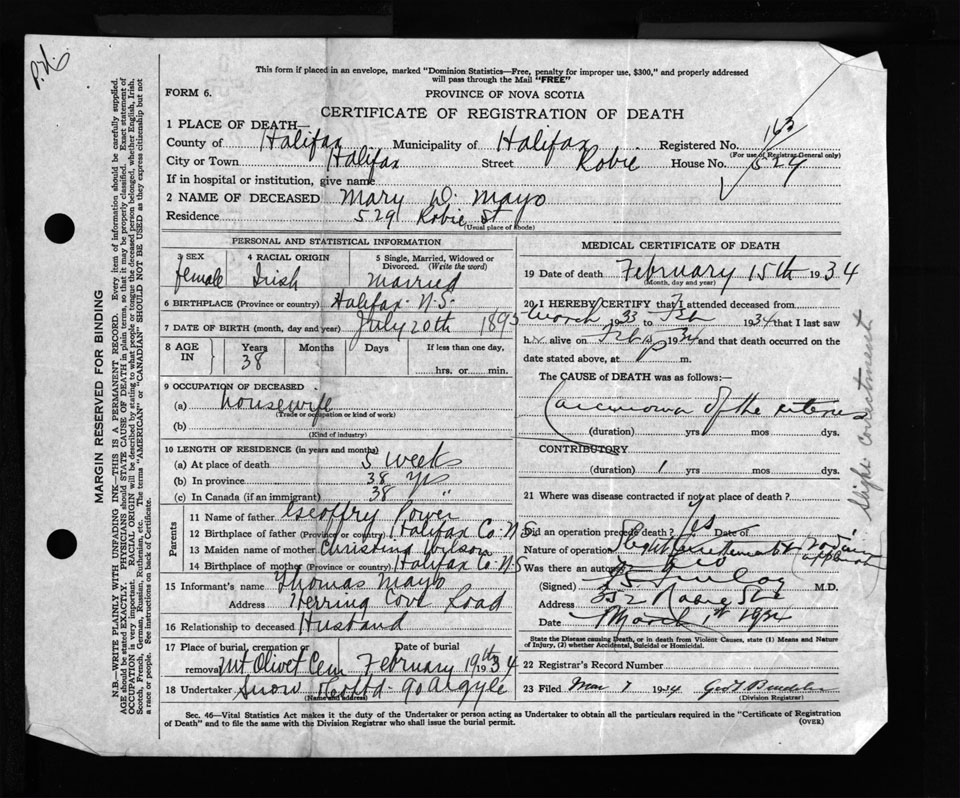 This form if placed in an envelope, marked "Dominion Statistics—Free, penalty for improper use, $300," and properly addressed
will pass through the Mail "FREE"
FORM 6.
PROVINCE OF NOVA SCOTIA
CERTIFICATE OF REGISTRATION OF DEATH
1 PLACE OF DEATH—
County of Halifax Municipality of Halifax Registered No. 163
(For use of Registrar General only)
City or Town Halifax Street Robie House No. 529
If in hospital or institution, give name
2 NAME OF DECEASED Mary D. Mayo
Residence 529 Robie St
(Usual place of abode)
PERSONAL AND STATISTICAL INFORMATION
3 SEX 4 RACIAL ORIGIN 5 Single, Married, Widowed or
Divorced. (Write the word)
female Irish Married
6 BIRTHPLACE (Province or country) Halifax N.S.
7 DATE OF BIRTH (month, day and year) July 20th 1895
8 AGE IN Years Months Days If less than one day,
38 hrs. or min.
9 OCCUPATION OF DECEASED
(a) housewife
(Trade or occupation or kind of work)
(b)
(Kind of industry)
10 LENGTH OF RESIDENCE (in years and months)
(a) At place of death 3 weeks
(b) In province 38 yrs
(c) In Canada (if an immigrant) 38 "
Parents
11 Name of father Geoffry Power
12 Birthplace of father (Province or country) Halifax Co. N.S
13 Maiden name of mother Christina Wilson
14 Birthplace of mother (Province or country) Halifax Co. N.S
15 Informant's name Thomas Mayo
Address Herring Cove Road
16 Relationship to deceased Husband
17 Place of burial, cremation or removal Date of burial
Mt Olivet Cem February 19th 1934
18 Undertaker Snow 90 Argyle
(Name and address)
MEDICAL CERTIFICATE OF DEATH
19 Date of death February 15th 1934
(Month, day and year)
20 I HEREBY CERTIFY that I attended deceased from
March 1933 to Feb 1934 that I last saw
h alive on Feb 1934 and that death occurred on the
date stated above, at p m.
The CAUSE of DEATH was as follows:—
Carcinoma of the uterus
(duration) yrs mos dys.
CONTRIBUTORY
(duration) 1 yrs mos dys.
21 Where was disease contracted if not at place of death?
Did an operation precede death? Yes Date of
Nature of operation
Was there an autopsy? No
(Signed) M.D.
Address
Date March 1st 1934
State the Disease causing Death, or in death from Violent Causes, state (1) Means and Nature
of Injury, (2) whether Accidental, Suicidal or Homicidal.
22 Registrar's Record Number
23 Filed Mar 7 1934
(Division Registrar)
Sec. 46—Vital Statistics Act makes it the duty of the Undertaker or person acting as Undertaker to obtain all the particulars required in the "Certificate of Registration
of Death" and to file the same with the Division Registrar who shall issue the burial permit.
(OVER)
MARGIN RESERVED FOR BINDING
N.B.—WRITE PLAINLY WITH UNFADING INK—THIS IS A PERMANENT RECORD. Every item of information should be carefully supplied.
AGE should be stated EXACTLY. PHYSICIANS should STATE CAUSE OF DEATH in plain terms, so that it may be properly classified. Exact statement of
OCCUPATION is very important. RACIAL ORIGIN will be described by stating to what people or tongue the deceased person belonged, whether English, Irish,
Scotch, French, German, Russian, Ruthenian, etc. The terms "AMERICAN" or "CANADIAN" SHOULD NOT BE USED as they express citizenship but not
a race or people. See instructions on back of Certificate.